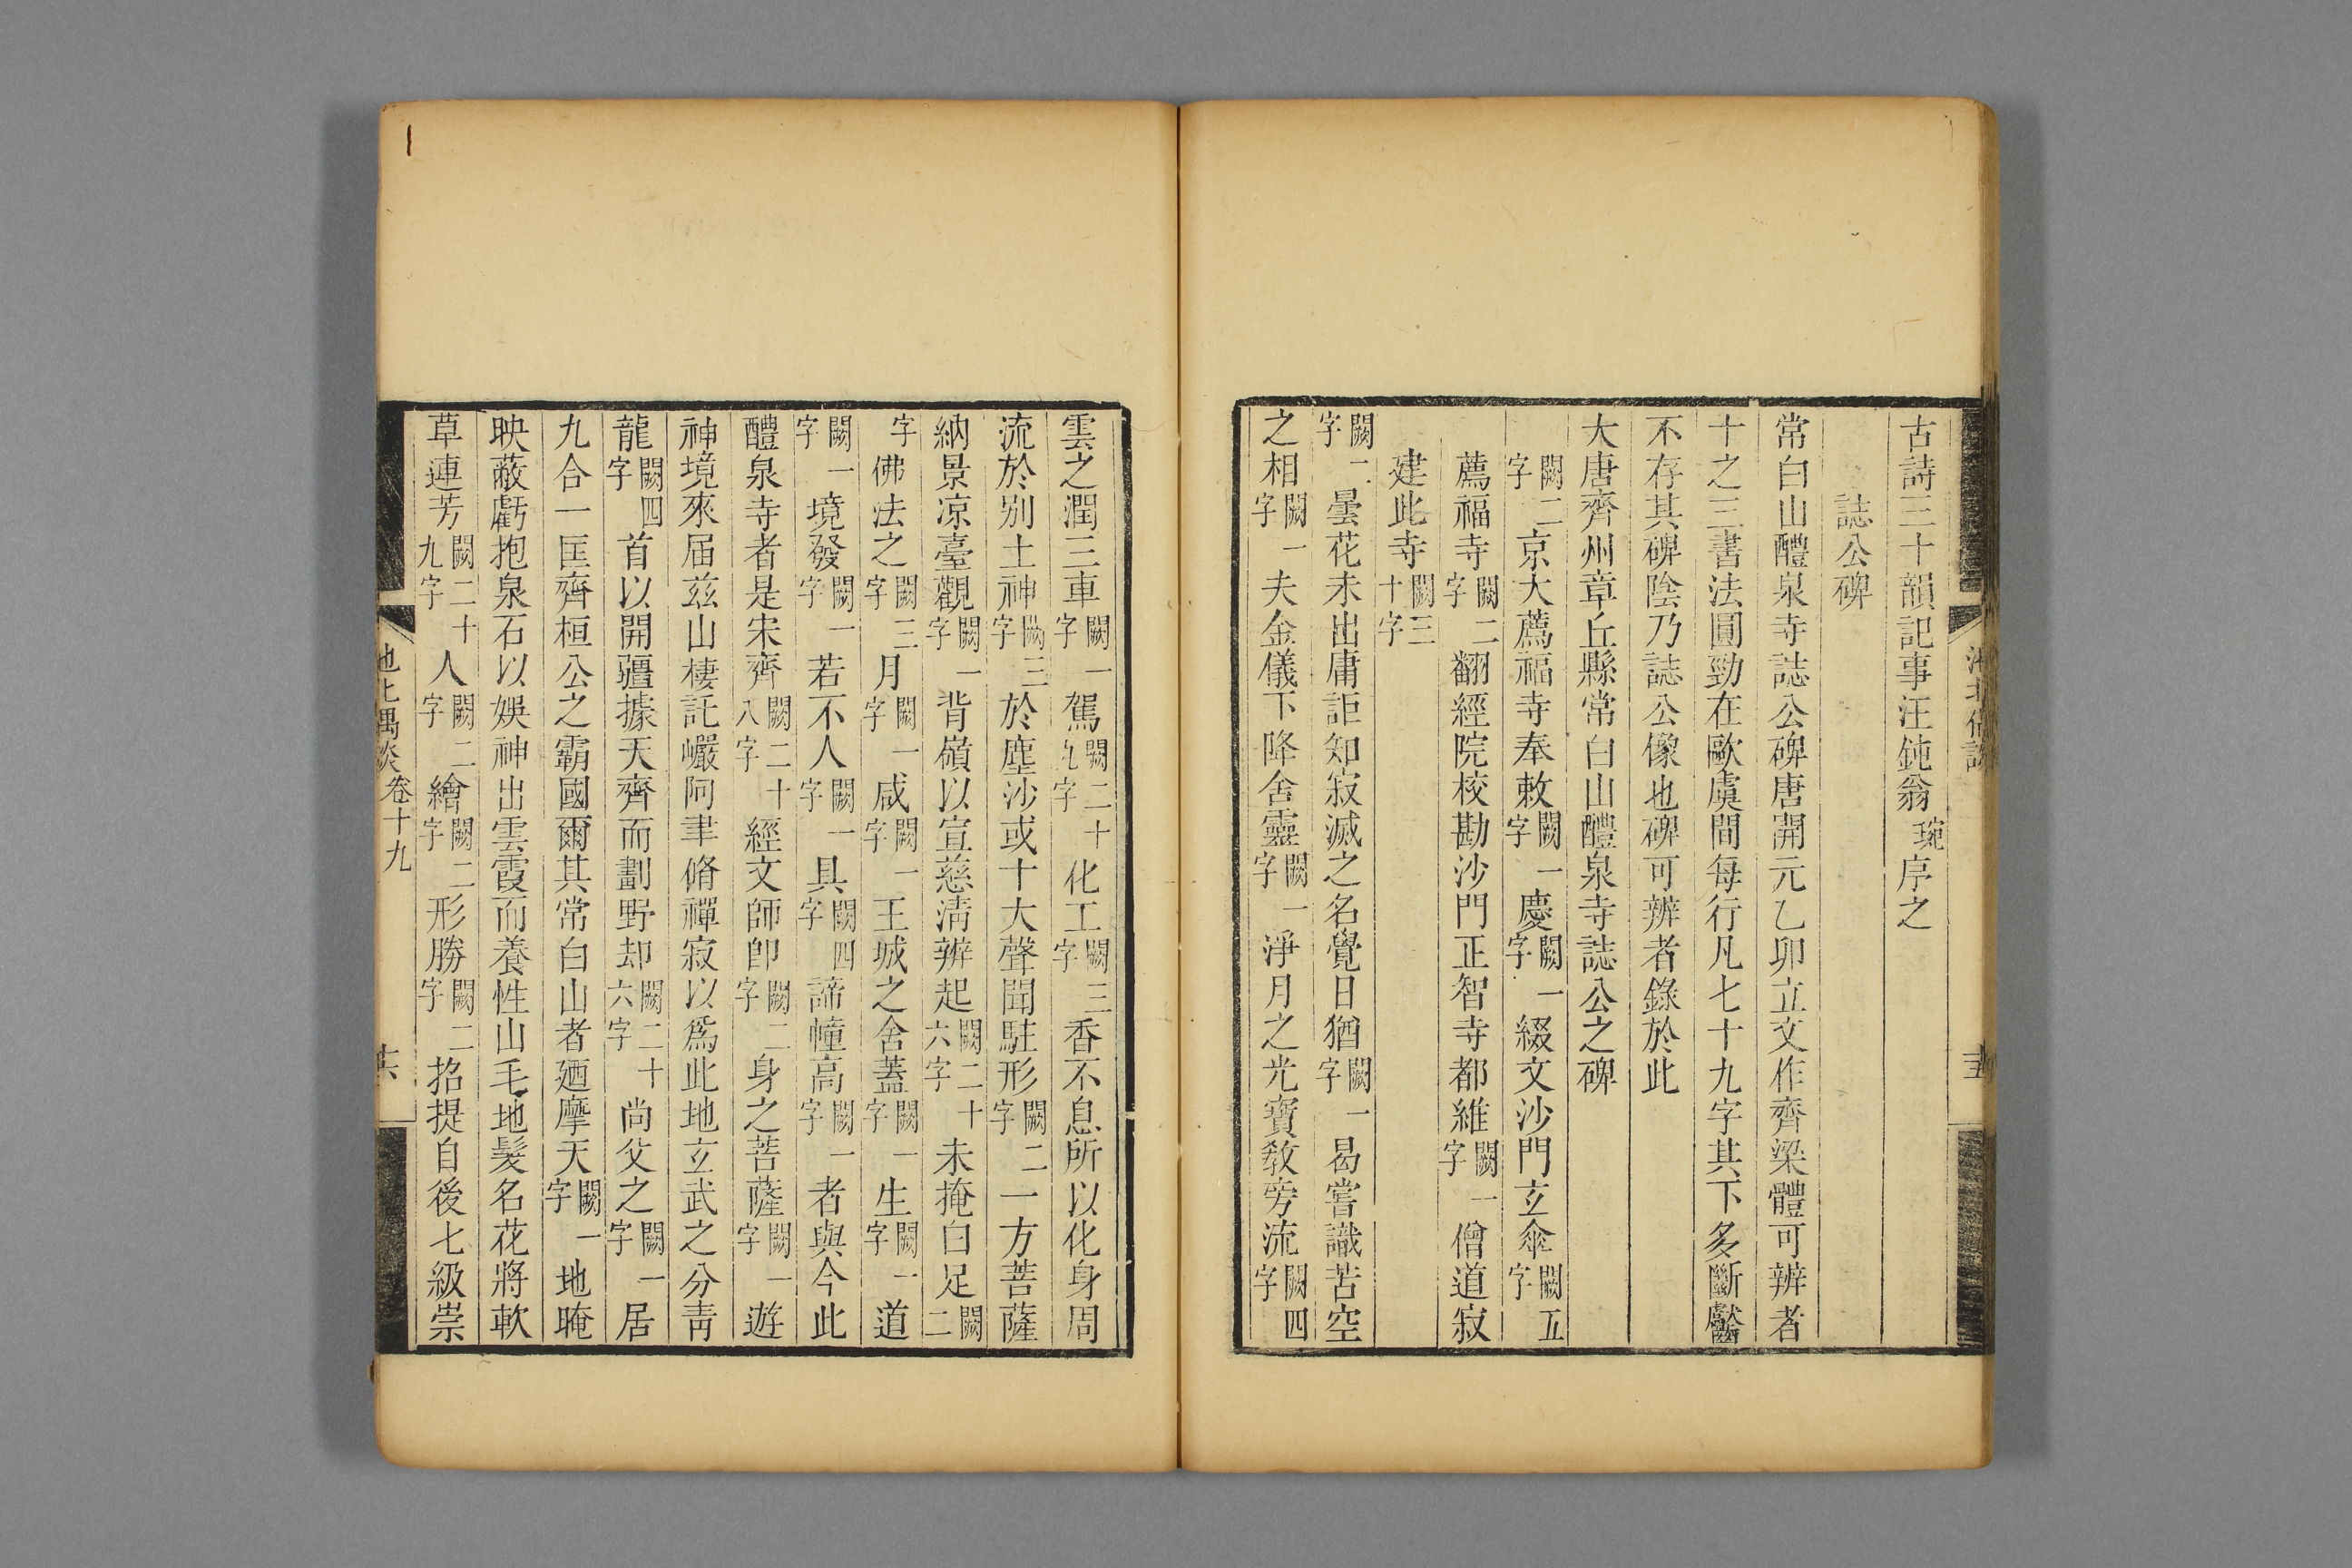 古詩三十韻記事汪鈍翁琬序之
誌公碑
常白山醴泉寺誌公碑唐開元乙卯立文作齊梁體可辨者
十之三書法圓勁在歐虞間每行凡七十九字其下多斷齾
不存其碑陰乃誌公像也碑可辨者錄於此
大唐齊州章丘縣常白山醴泉寺誌公之碑
闕二字京大薦福寺奉敕闕一字慶闕一字綴文沙門玄傘闕五字
薦福寺闕二字翻經院校勘沙門正智寺都維闕一字僧道寂
建此寺闕三十字
闕二字曇花未出庸詎知寂滅之名覺日猶闕一字曷嘗識苦空
之相闕一字夫金儀下降舍靈闕一字淨月之光寶敎旁流闕四字
雲之潤三車闕一字駕闕二十九字化工闕三字香不息所以化身周
流於別土神闕三字於塵沙或十大聲聞駐形闕二字一方菩薩
納景凉臺觀闕一字背嶺以宣慈淸辨起闕二十六字未掩白足闕二
字佛法之闕三字月闕一字咸闕一字王城之舍蓋闕一字生闕一字道
闕一字境發闕一字若不人闕一字具闕四字諦幢高闕一字者與今此
醴泉寺者是宋齊闕二十八字經文師卽闕二字身之菩薩闕一字遊
神境來届茲山棲託巖阿聿脩禪寂以爲此地玄武之分靑
龍闕四字首以開疆據天齊而劃野却闕二十六字尚父之闕一字居
九合一匡齊桓公之霸國爾其常白山者廼摩天闕一字地晻
映蔽虧抱泉石以娛神出雲霞而養性山毛地髮名花將軟
草連芳闕二十九字人闕二字繪闕二字形勝闕二字招提自後七級崇
池北偶談 卷十九 十六